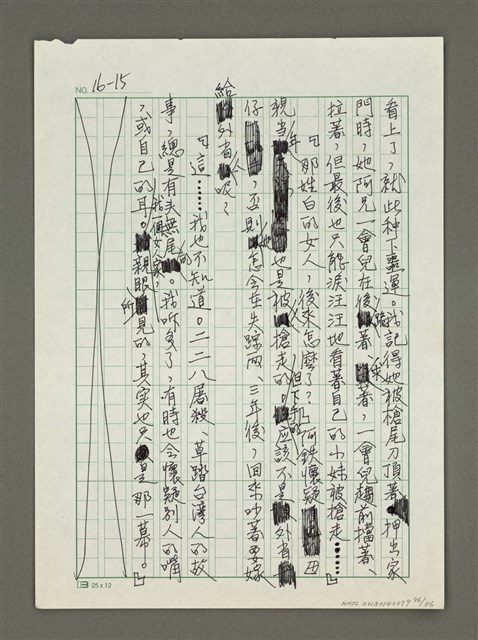 NO. 16-15
看上了，就此种下噩運。我記得她被槍尾刀頂著押出家
門時，她阿兄一會兒在後跟著、求著，一會兒趨前擋著、
拉著，但最後也只能淚汪汪地看著自己的小妹被搶走……』
『那姓白的女人，後來怎麼了？』阿鉄懷疑母
親当年也是被人搶走的。但下手的應該不是外省
仔，否則她怎会在失踪两、三年後，回來吵著要嫁
給外省人呢？
『這……我也不知道。二二八屠殺、草踏台湾人的故
事，總是有头無尾的。我听多了，有時也会懷疑別人的嘴
，或自己的耳。我一個女人家，親眼所見的，其実也只是那一幕。』
25x12
NMTL20120140079 76/86